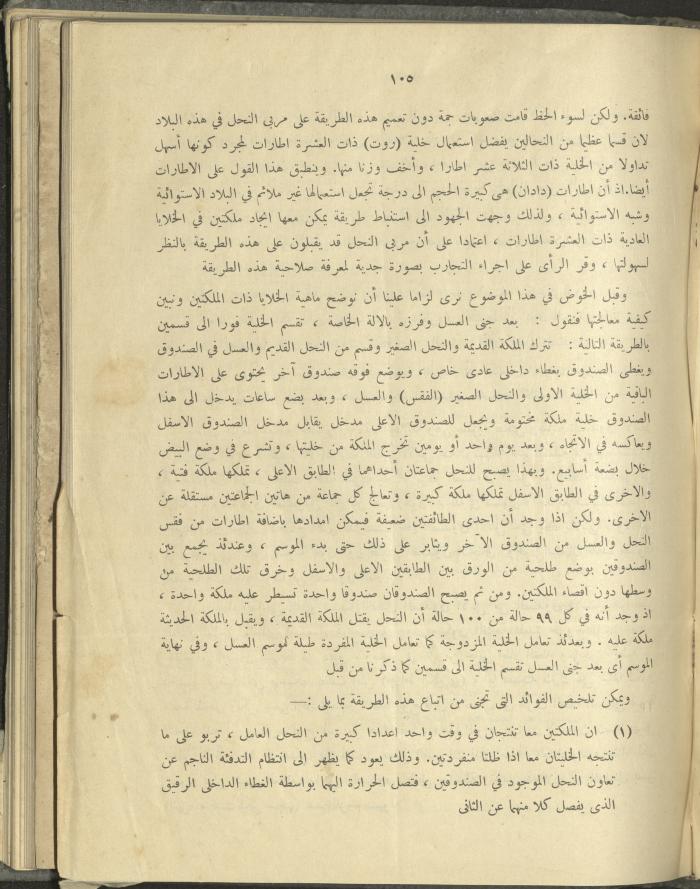 ١٠٥
فائقة. ولكن لسوء الحظ قامت صعوبات جمة دون تعميم هذه الطريقة على مربى النحل في هذه البلاد
لان قسما عظيما من النحالين يفضل استعمال خلية (روت) ذات العشرة اطارات لمجرد كونها أسهل
تداولا من الخلية ذات الثلاثة عشر اطارا ، وأخف وزنا منها. وينطبق هذا القول على الاطارات
أيضا.اذ أن اطارات (دادان) هى كبيرة الحجم الى درجة تجعل استعمالها غير ملائم في البلاد الاستوائية
وشبه الاستوائية ، ولذلك وجهت الجهود الى استنباط طريقة يمكن معها ايجاد ملكتين في الخلايا
العادية ذات العشرة اطارات ، اعتمادا على أن مربى النحل قد يقبلون على هذه الطريقة بالنظر
لسهولتها ، وقر الرأى على اجراء التجارب بصورة جدية لمعرفة صلاحية هذه الطريقة
وقبل الخوض في هذا الموضوع نرى لزاما علينا أن نوضح ماهية الخلايا ذات الملكتين ونبين
كيفية معالجتها فنقول : بعد جنى العسل وفرزه بالالة الخاصة ، تقسم الخلية فورا الى قسمين
بالطريقة التالية : تترك الملكة القديمة والنحل الصغير وقسم من النحل القديم والعسل في الصندوق
ويغطى الصندوق بغطاء داخلى عادى خاص ، ويوضع فوقه صندوق آخر يحتوى على الاطارات
الباقية من الخلية الاولى والنحل الصغير (الفقس) والعسل ، وبعد بضع ساعات يدخل الى هذا
الصندوق خلية ملكة مختومة ويجعل للصندوق الاعلى مدخل يقابل مدخل الصندوق الاسفل
ويعاكسه في الاتجاه ، وبعد يوم واحد أو يومين تخرج الملكة من خليتها ، وتشرع في وضع البيض
خلال بضعة أسابيع. وبهذا يصبح للنحل جماعتان أحداهما في الطابق الاعلى ، تملكها ملكة فتية ،
والاخرى في الطابق الاسفل تملكها ملكة كبيرة ، وتعالج كل جماعة من هاتين الجماعتين مستقلة عن
الاخرى. ولكن اذا وجد أن احدى الطائفتين ضعيفة فيمكن امدادها باضافة اطارات من فقس
النحل والعسل من الصندوق الآخر ويثابر على ذلك حتى بدء الموسم ، وعندئذ يجمع بين
الصندوقين بوضع طلحية من الورق بين الطابقين الاعلى والاسفل وخرق تلك الطلحية من
وسطها دون اقصاء الملكتين. ومن ثم يصبح الصندوقان صندوقا واحدة تسيطر عليه ملكة واحدة ،
اذ وجد أنه في كل ٩٩ حالة من ١٠٠ حالة أن النحل يقتل الملكة القديمة ، ويقبل بالملكة الحديثة
ملكة عليه . وبعدئذ تعامل الخلية المزدوجة كما تعامل الخلية المفردة طيلة موسم العسل ، وفي نهاية
الموسم أى بعد جنى العسل تقسم الخلية الى قسمين كما ذكرنا من قبل
ويمكن تلخيص الفوائد التى تجنى من اتباع هذه الطريقة بما يلى :—
(١) ان الملكتين معا تنتجان في وقت واحد اعدادا كبيرة من النحل العامل ، تربو على ما
تنتجه الخليتان معا اذا ظلتا منفردتين. وذلك يعود كما يظهر الى انتظام التدفئة الناجم عن
تعاون النحل الموجود في الصندوقين ، فتصل الحرارة اليهما بواسطة الغطاء الداخلى الرقيق
الذى يفصل كلا منهما عن الثانى